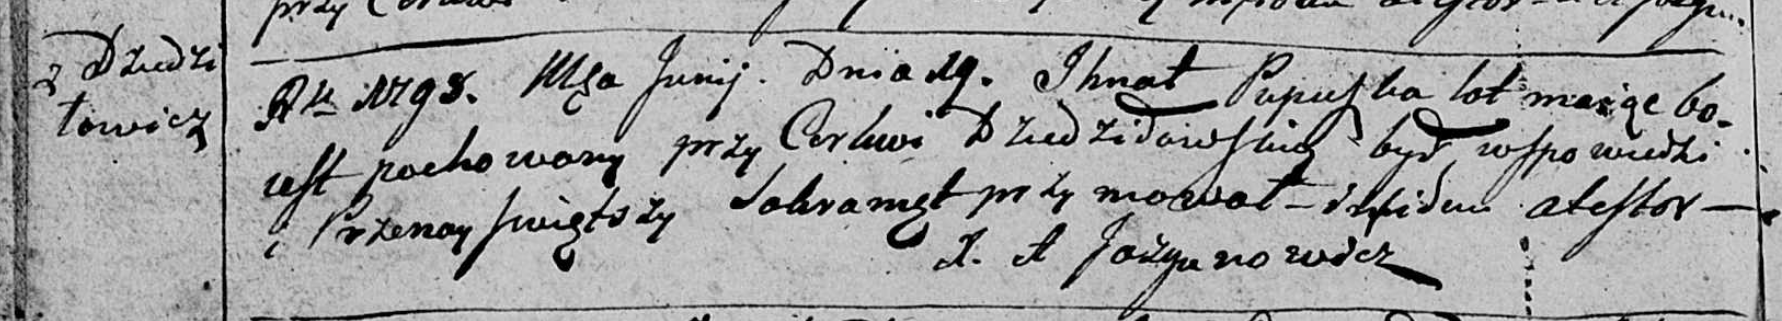 przy Cerkwi
z Dziedzi
łowicz
Rku 1798. Mśca Junij. Dnia 19. Ihnat Pupuszka lat maiąc 60.
iest pochowany przy Cerkwi Dziedziłowskiey był w spowiedzi
i Przenayświętszy Sakramęt przymował – in fidem atestor —
X. A Jazgunowicz